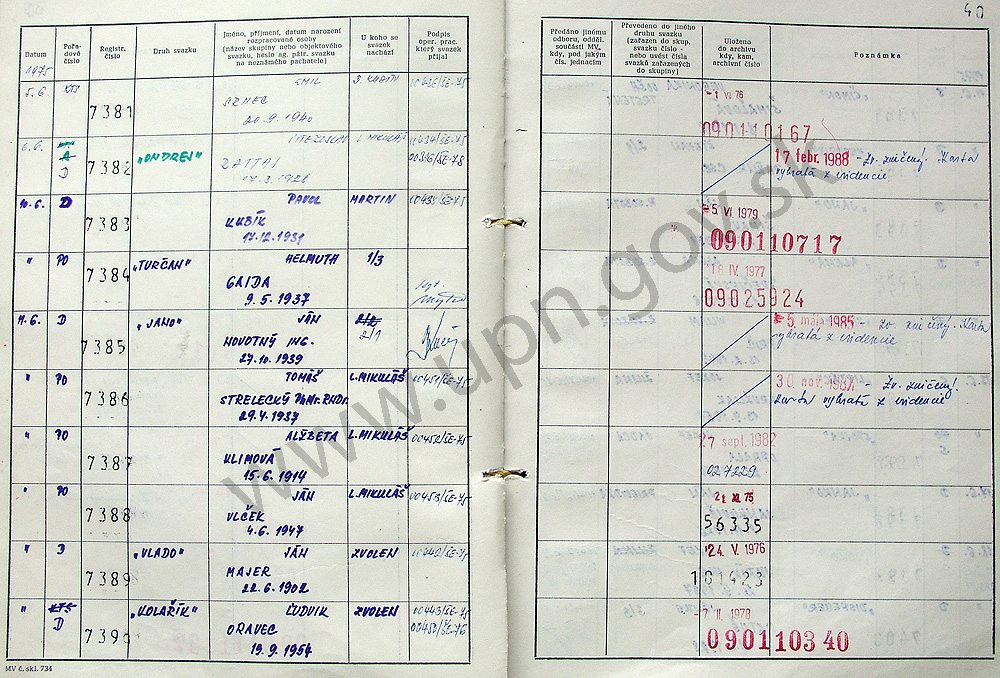 40
Datum
Pořadové číslo
Registr. číslo
Druh svazku
Jméno, příjmení, datum narození
rozpracované osoby
(název skupiny nebo objektového
svazku, heslo ag. pátr. svazku
na neznámého pachatele)
U koho se
svazek
nachází
Podpis
oper. prac.
který svazek
přijal
Předáno jinému
odboru, odděl.
součásti MV,
kdy, pod jakým
čís. jednacím
Převedeno do jiného
druhu svazku
(zařazen do skup.
svazku číslo -
nebo uvést čísla
svazků zařazených
do skupiny)
Uloženo
do archivu
kdy, kam,
archivní číslo
Poznámka
1975
5.6. KTS 7381 EMIL
20.9.1940
- 1 VII 76
090110167
6.6. A D 7382 „ONDREJ" L. MIKULÁŠ
00316/SE-78
17 febr. 1988 - Zv. zničený! Karta
vybratá z evidencie
10.6. D 7383 PAVOL MARTIN
KUBÍK
17.12.1931
- 5. VI 1979
090110717
" PO 7384 „TURČAN" HELMUTH 1/3
GAJDA
9.5.1937
18 IV. 1977
09025924
11.6. D 7385 „JANO" JÁN 2/1
NOVOTNÝ ING.
27.10.1939
5. mája 1985 - Zv. zničený. Karta
vybratá z evidencie
" PO 7386 TOMÁŠ L.MIKULÁŠ 00451/SE-75
STRELECKÝ
29.4.1937
30. nov. 1987 - Zv. zničený!
Karta vybratá z evidencie
" PO 7387 ALŽBETA L.MIKULÁŠ 00452/SE-75
KLIMOVÁ
15.6.1914
27 sept. 1982
027229
" PO 7388 JÁN L.MIKULÁŠ 00453/SE-75
VLČEK
4.6.1947
21. XI. 75
56335
" D 7389 „VLADO" JÁN ZVOLEN 00442/SE-75
MAJER
22.6.1902
24. V. 1976
101423
" KTS D 7390 „KOLAŘÍK" ĽUDVIK ZVOLEN 00443/SE-75
ORAVEC
19.9.1954
- 7 II. 1978
090110340
MV č. skl. 734
www.upn.gov.sk